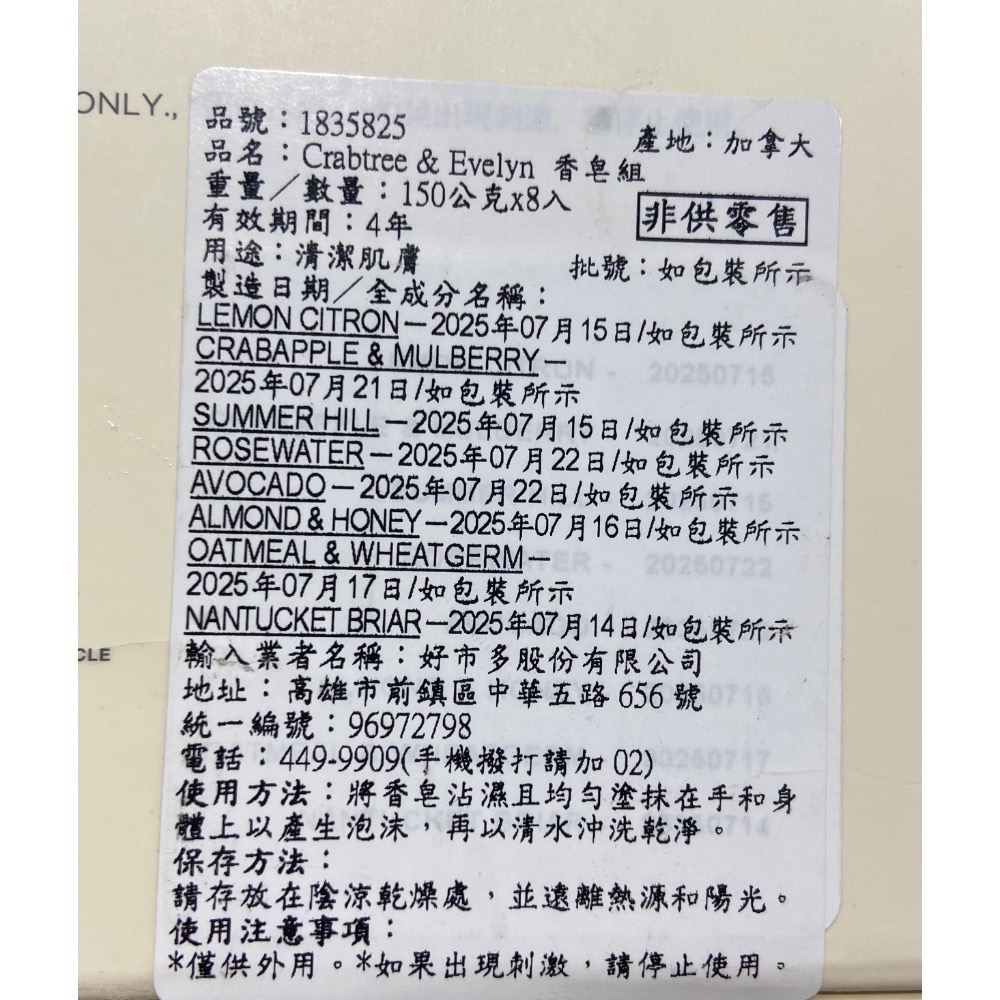 ONLY.,
品號：1835825
產地：加拿大
品名：Crabtree & Evelyn 香皂組
重量／數量：150公克x8入
非供零售
有效期間：4年
用途：清潔肌膚
批號：如包裝所示
製造日期／全成分名稱：
LEMON CITRON－2025年07月15日/如包裝所示
CRABAPPLE & MULBERRY－
2025年07月21日/如包裝所示
SUMMER HILL－2025年07月15日/如包裝所示
ROSEWATER－2025年07月22日/如包裝所示
AVOCADO－2025年07月22日/如包裝所示
ALMOND & HONEY－2025年07月16日/如包裝所示
OATMEAL & WHEATGERM－
2025年07月17日/如包裝所示
NANTUCKET BRIAR－2025年07月14日/如包裝所示
CLE
輸入業者名稱：好市多股份有限公司
地址：高雄市前鎮區中華五路 656 號
統一編號：96972798
電話：449-9909(手機撥打請加 02)
使用方法：將香皂沾濕且均勻塗抹在手和身
體上以產生泡沫，再以清水沖洗乾淨。
保存方法：
請存放在陰涼乾燥處，並遠離熱源和陽光。
使用注意事項：
*僅供外用。*如果出現刺激，請停止使用。